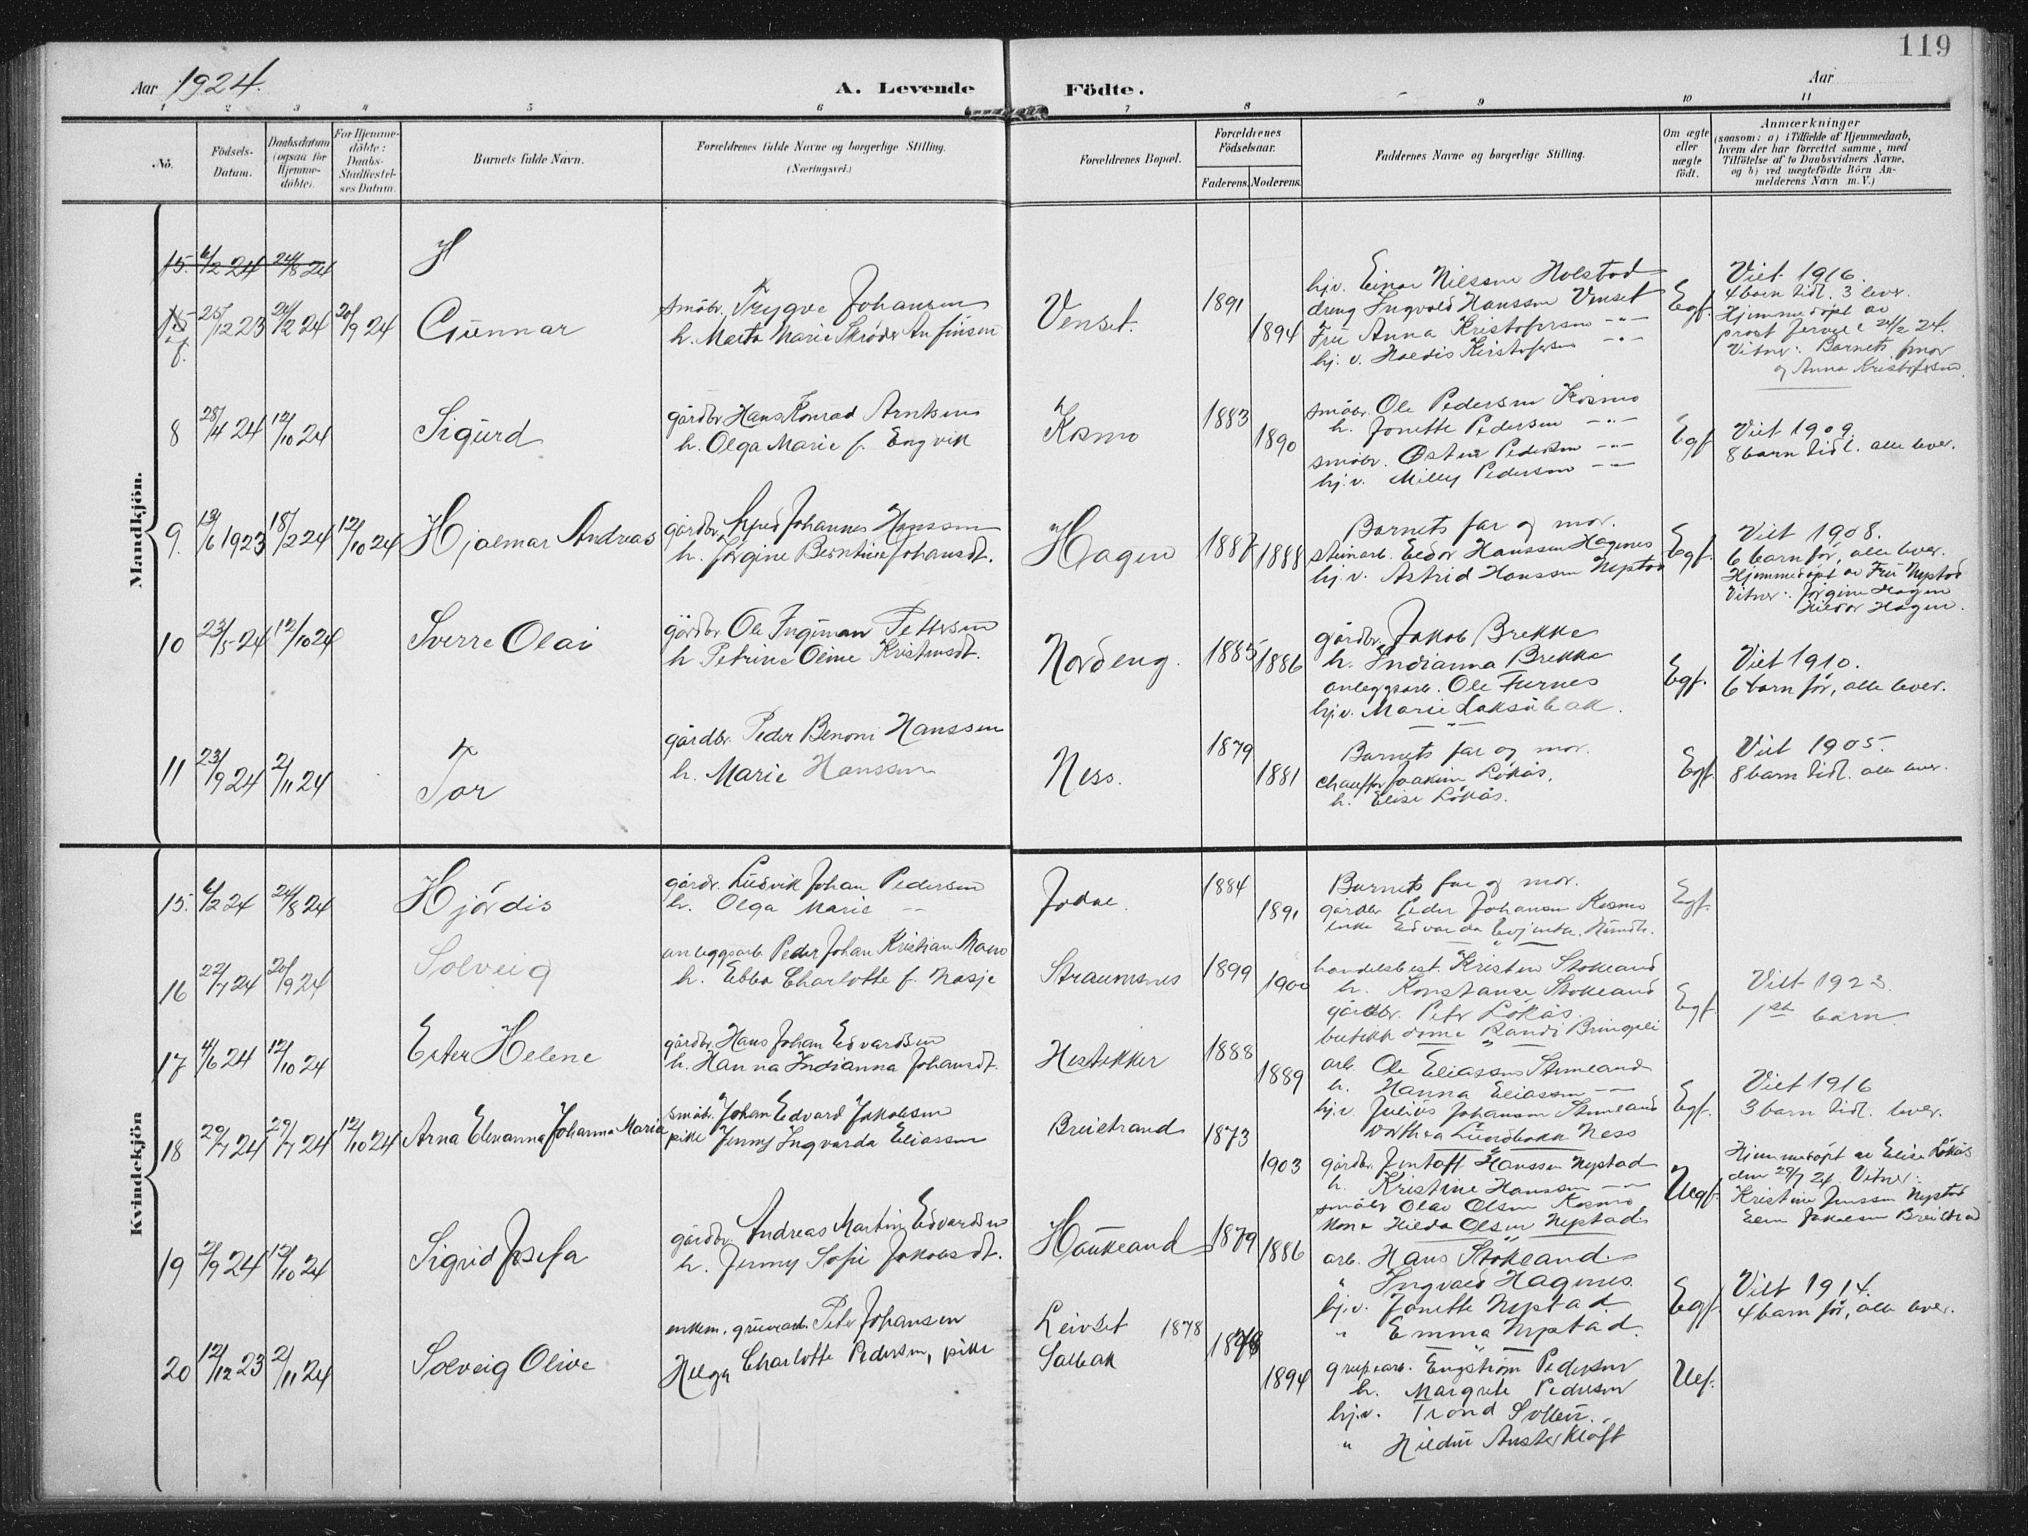 119
Aar 1924.
A. Levende Födte.
Aar
1 2 3 4 5 6 7 8 9 10 11
No.
Födsels-Datum.
Daabsdatum (ogsaa for Hjemme-döbte).
For Hjemme-döbte: Daabs-Stadfæstel-ses Datum.
Barnets fulde Navn.
Forældrenes fulde Navne og borgerlige Stilling.
(Næringsvei.)
Forældrenes Bopæl.
Forældrenes Födselsaar.
Faderens. Moderens.
Faddernes Navne og borgerlige Stilling.
Om ægte eller uægte födt.
Anmærkninger
(saasom: a) i Tilfælde af Hjemmedaab,
hvem der har forrettet samme, med
Tilföielse af to Daabsvidners Navne,
og b) ved uægtefödte Börn An-
melderens Navn m. V.)
Mandkjön.
15. 6/2 24 24/8 24 H
25/12 23 24/2 24 20/9 24 Gunnar
småbr. Trygve Johansen
h. Marta Marie Skrøder Anfinsen
Venset.
1891
1894
hjv. Einar Nilssen Holstad
dreng Ingvald Hanssen Venset
Frk Anna Kristofersen -"-
hj. v. Hordis Kristofersen -"-
Egf.
Viet 1916.
4 barn tidl. 3 lever.
Hjemmedöpt av
prost Jervell 24/2 24.
Vitner: Barnets mor
og Anna Kristofersen.
8 28/4 24 12/10 24 Sigurd
gårdbr. Hans Konrad Arntsen
h. Olga Marie f. Engvik
Kosmo
1883
1890
småbr. Ole Pedersen Kosmo
h. Jonette Pedersen -"-
småbr. Østen Pedersen -"-
hj. v. Milly Pedersen -"-
Egf.
Viet 1909.
8 barn tidl. alle lever.
9. 13/6 1923 18/2 24 12/10 24 Hjalmar Andreas
gårdbr. Alfred Johannes Hanssen
h. Jörgine Berntine Johansdt.
Hagen
1887 1888
Barnets far og mor.
stenarb. Eldor Hanssen Hagenes
hj. v. Astrid Hanssen Nystad
Egf.
Viet 1908.
6 barn för, alle lever.
Hjemmedöpt av Frk Nystad
Vitner: Jörgine Hagen
Hildor Hagen.
10 23/5 24 12/10 24 Sverre Olai
gårdbr Ole Ingeman Pettersen
h Petrine Oline Kristensdt.
Nordeng.
1885 1886
gårdbr. Jakob Brekke
h. Indianna Brekke
anleggsarb. Ole Furnes
hj.v. Marie Laksåbak.
Egf.
Viet 1910.
6 barn för, alle lever.
11 23/9 24 2/11 24 Tor
gårdbr. Peder Benoni Hanssen
h. Marie Hanssen
Ness.
1879
1881
Barnets far og mor.
chauffør Joakim Lökås.
h. Elise Lökås.
Egf.
Viet 1905.
8 barn tidl. alle lever.
Kvindekjön
15. 6/2 24 24/8 24 Hjördis
gårdr. Ludvik Johan Pedersen
h. Olga Marie -"-
1884
1891
Barnets far og mor.
gårdbr. Peder Johansen Kosmo
enke Edvarda
Egf.
16 22/7 24 20/9 24 Solveig
anleggsarb. Peder Johan Kristian Moen
h. Ebba Charlotte f. Nasje
Straumsnes
1899
1900
handelsbest. Kristen Stokland
h. Konstanse Stokland
gårdbr. Petr Lökås.
butikkdame Randi Bringsli
Egf.
Viet 1923.
1ste barn.
17 4/6 24 12/10 24 Ester Helene
gårdbr. Hans Johan Edvardsen
h. Hanna Indianna Johansdt.
Hestekker
1888
1889
arb. Ole Eliassen Stemland
h. Hanna Eliassen -"-
hj.v. Julius Johansen Stemland
Dorthea Lundbakk Ness
Egf.
Viet 1916
3 barn tidl. lever.
18 20/7 24 29/7 24 12/10 24 Arna Elevanna Johanna Maria
småbr. Johan Edvard Jakobsen
pike Jenny Ingvarda Eliassen
Breistrand
1873
1903
gårdbr. Jentoft Hanssen Nystad
h. Kristine Hanssen -"-
småbr Olav Olsen Kosmo
kona Hilda Olsen Nystad
Uegf.
Hjemmedöpt av Elise Lökås
den 29/7 24. Vitner:
Kristine Jenssen Nystad
Elen Jakobsen Breistrad
19 2/9 24 12/10 24 Sigrid Josefa
gårdbr. Andreas Martin Edvardsen
h. Jenny Sofie Jakobsdt.
Haukland
1879
1886
arb. Hans Stokland
" Ingvald Hagenes.
hj.v. Jonette Nystad.
" Emma Nystad.
Egf.
Viet 1914.
4 barn för, alle lever.
20 12/12 23 2/11 24 Solveig Olive
enkem. gruvearb. Peter Johansen
Helga Charlotte Pedersen, pike
Leivset 1878
Salbak
1878
1894
grubearb. Engström Pedersen
h. Margrete Pedersen
hj.v. Trond
" Hildur Austerkløft
Uef.